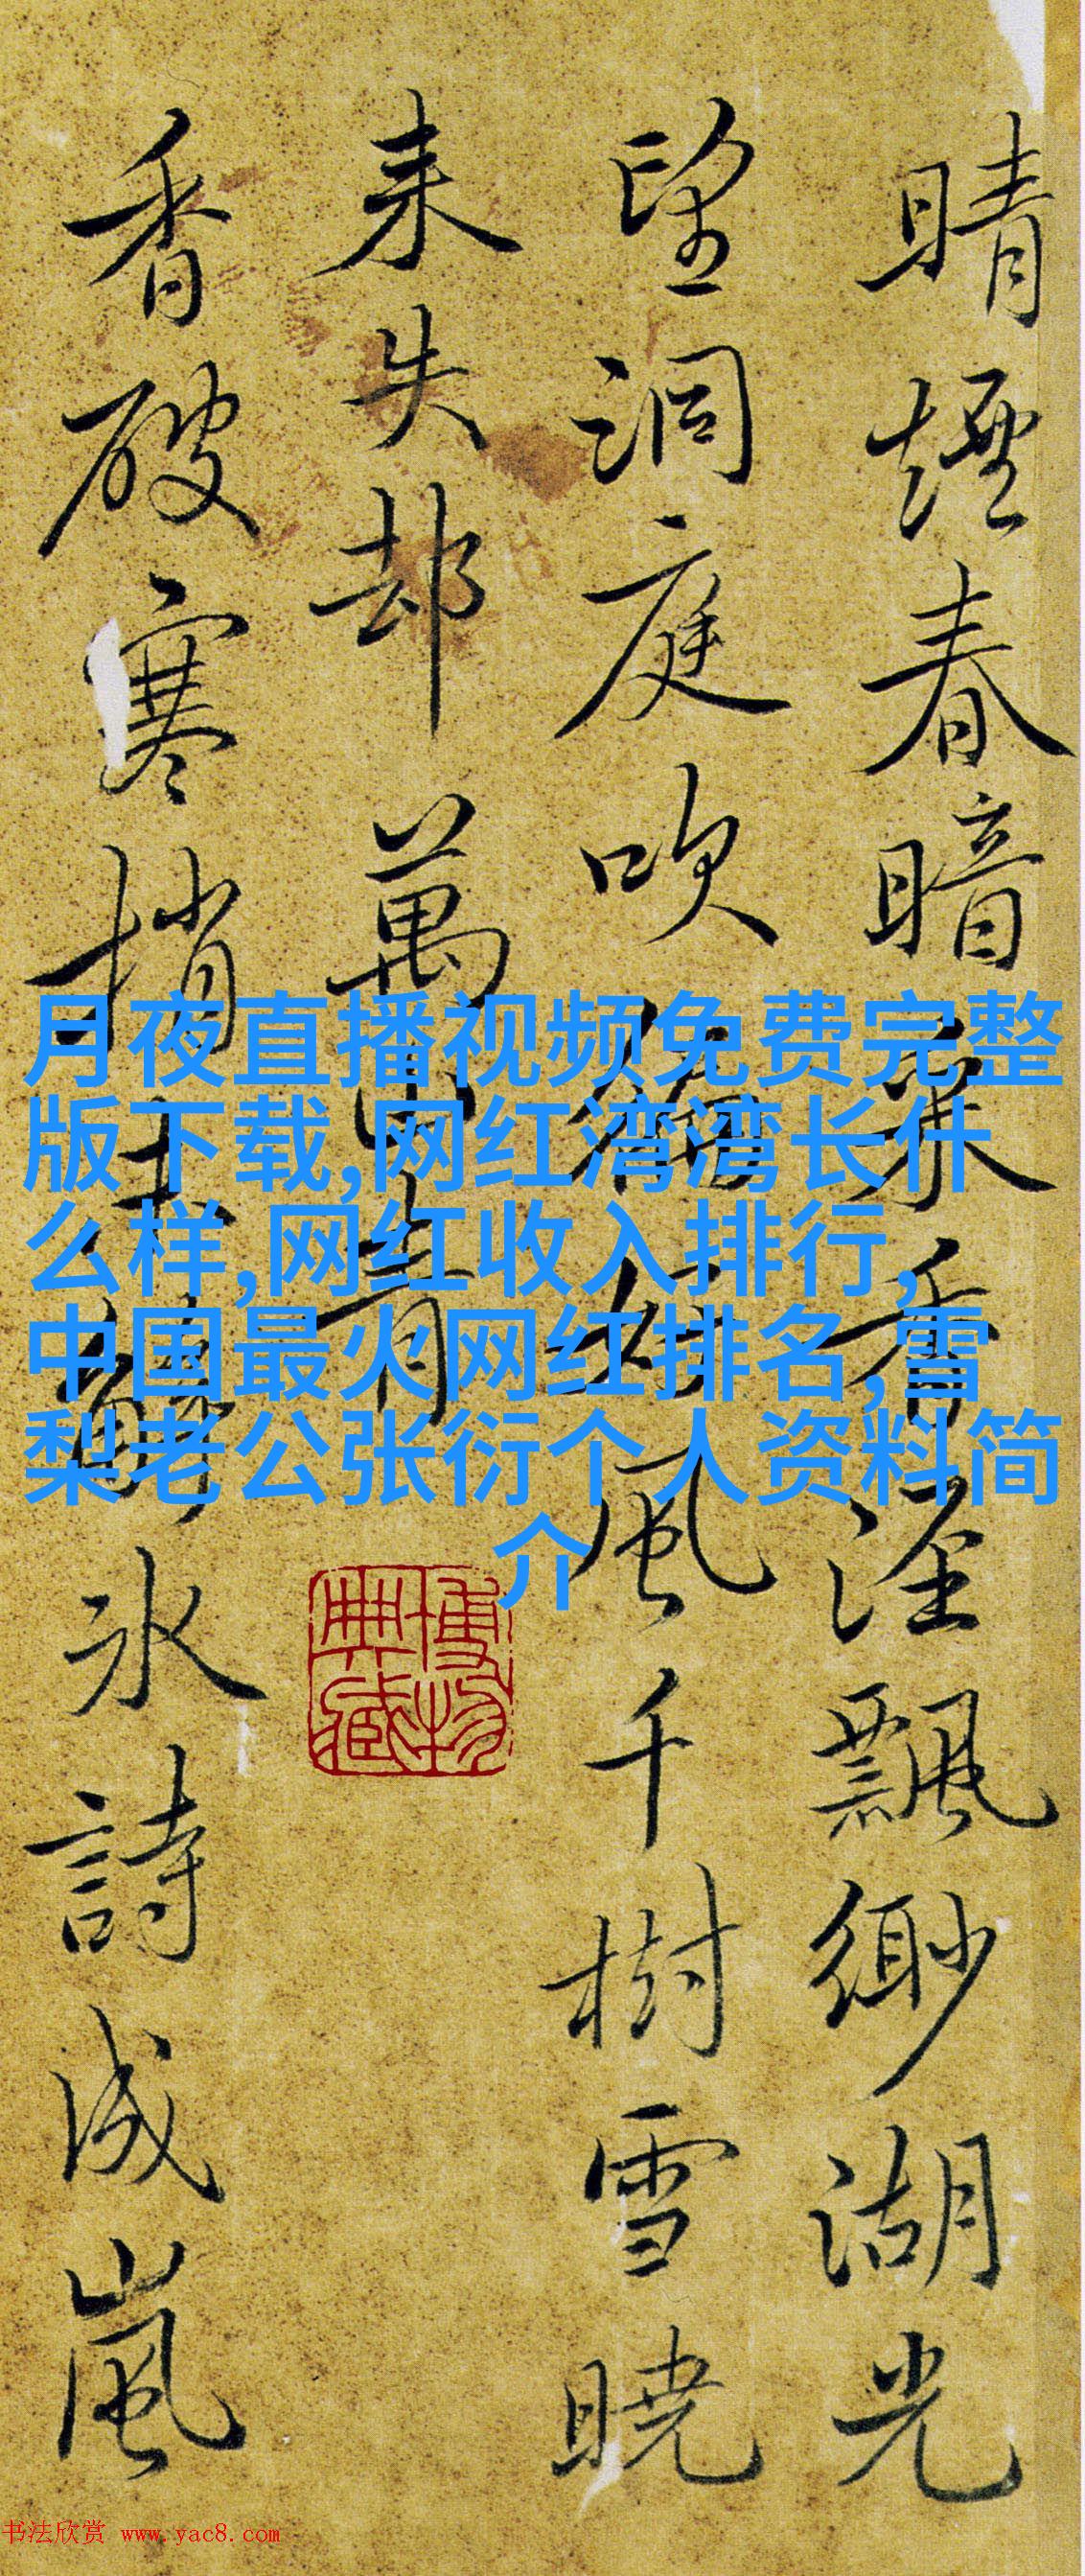 晴煙春暗采香涇飄緲湖光
望洞庭吹徧好風千樹雪曉
来失却萬山青
香破寒梢氷詩成嵐
月夜直播视频免费完整
版下载,网红湾湾长什
么样,网红收入排行,
中国最火网红排名,雪
梨老公张衍个人资料简
介
博物
典藏
书法欣赏 www.yac8.com